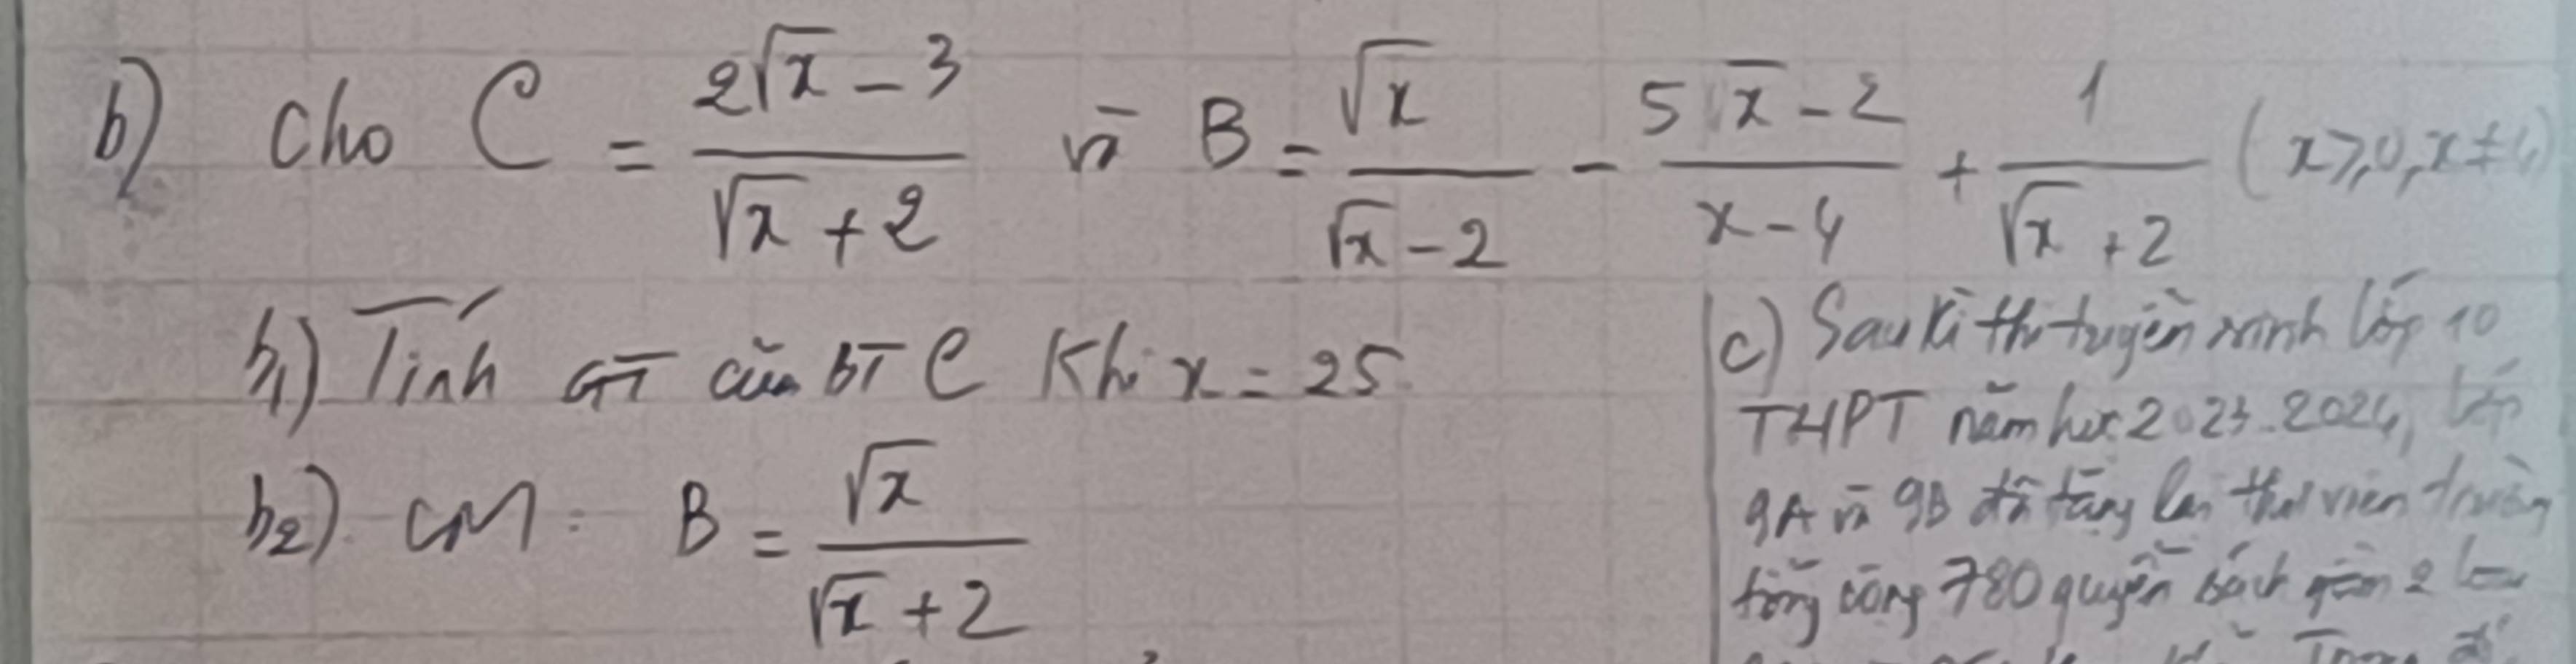 b) Cho C = \frac{2\sqrt{x} - 3}{\sqrt{x} + 2} và B = \frac{\sqrt{x}}{\sqrt{x} - 2} - \frac{5\sqrt{x} - 2}{x - 4} + \frac{1}{\sqrt{x} + 2} (x ⩾ 0, x ≠ 4)
b1) Tính GT của BT C Khi x = 25
b2) CM: B = \frac{\sqrt{x}}{\sqrt{x} + 2}
c) Sau kì thi tuyển sinh lớp 10
THPT năm học 2023-2024, lớp
9A và 9B đã tặng lại thư viện trường
tổng cộng 780 quyển sách gồm 2 loại